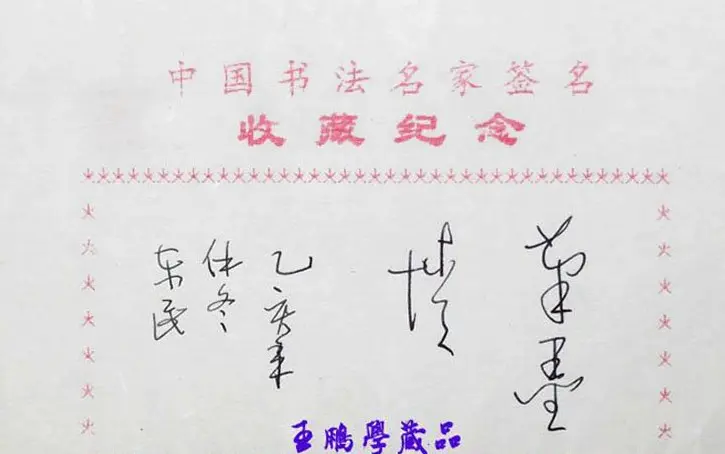 中国书法名家签名
收藏纪念
墨
乙亥年
仲冬
东民
王鵬學藏品